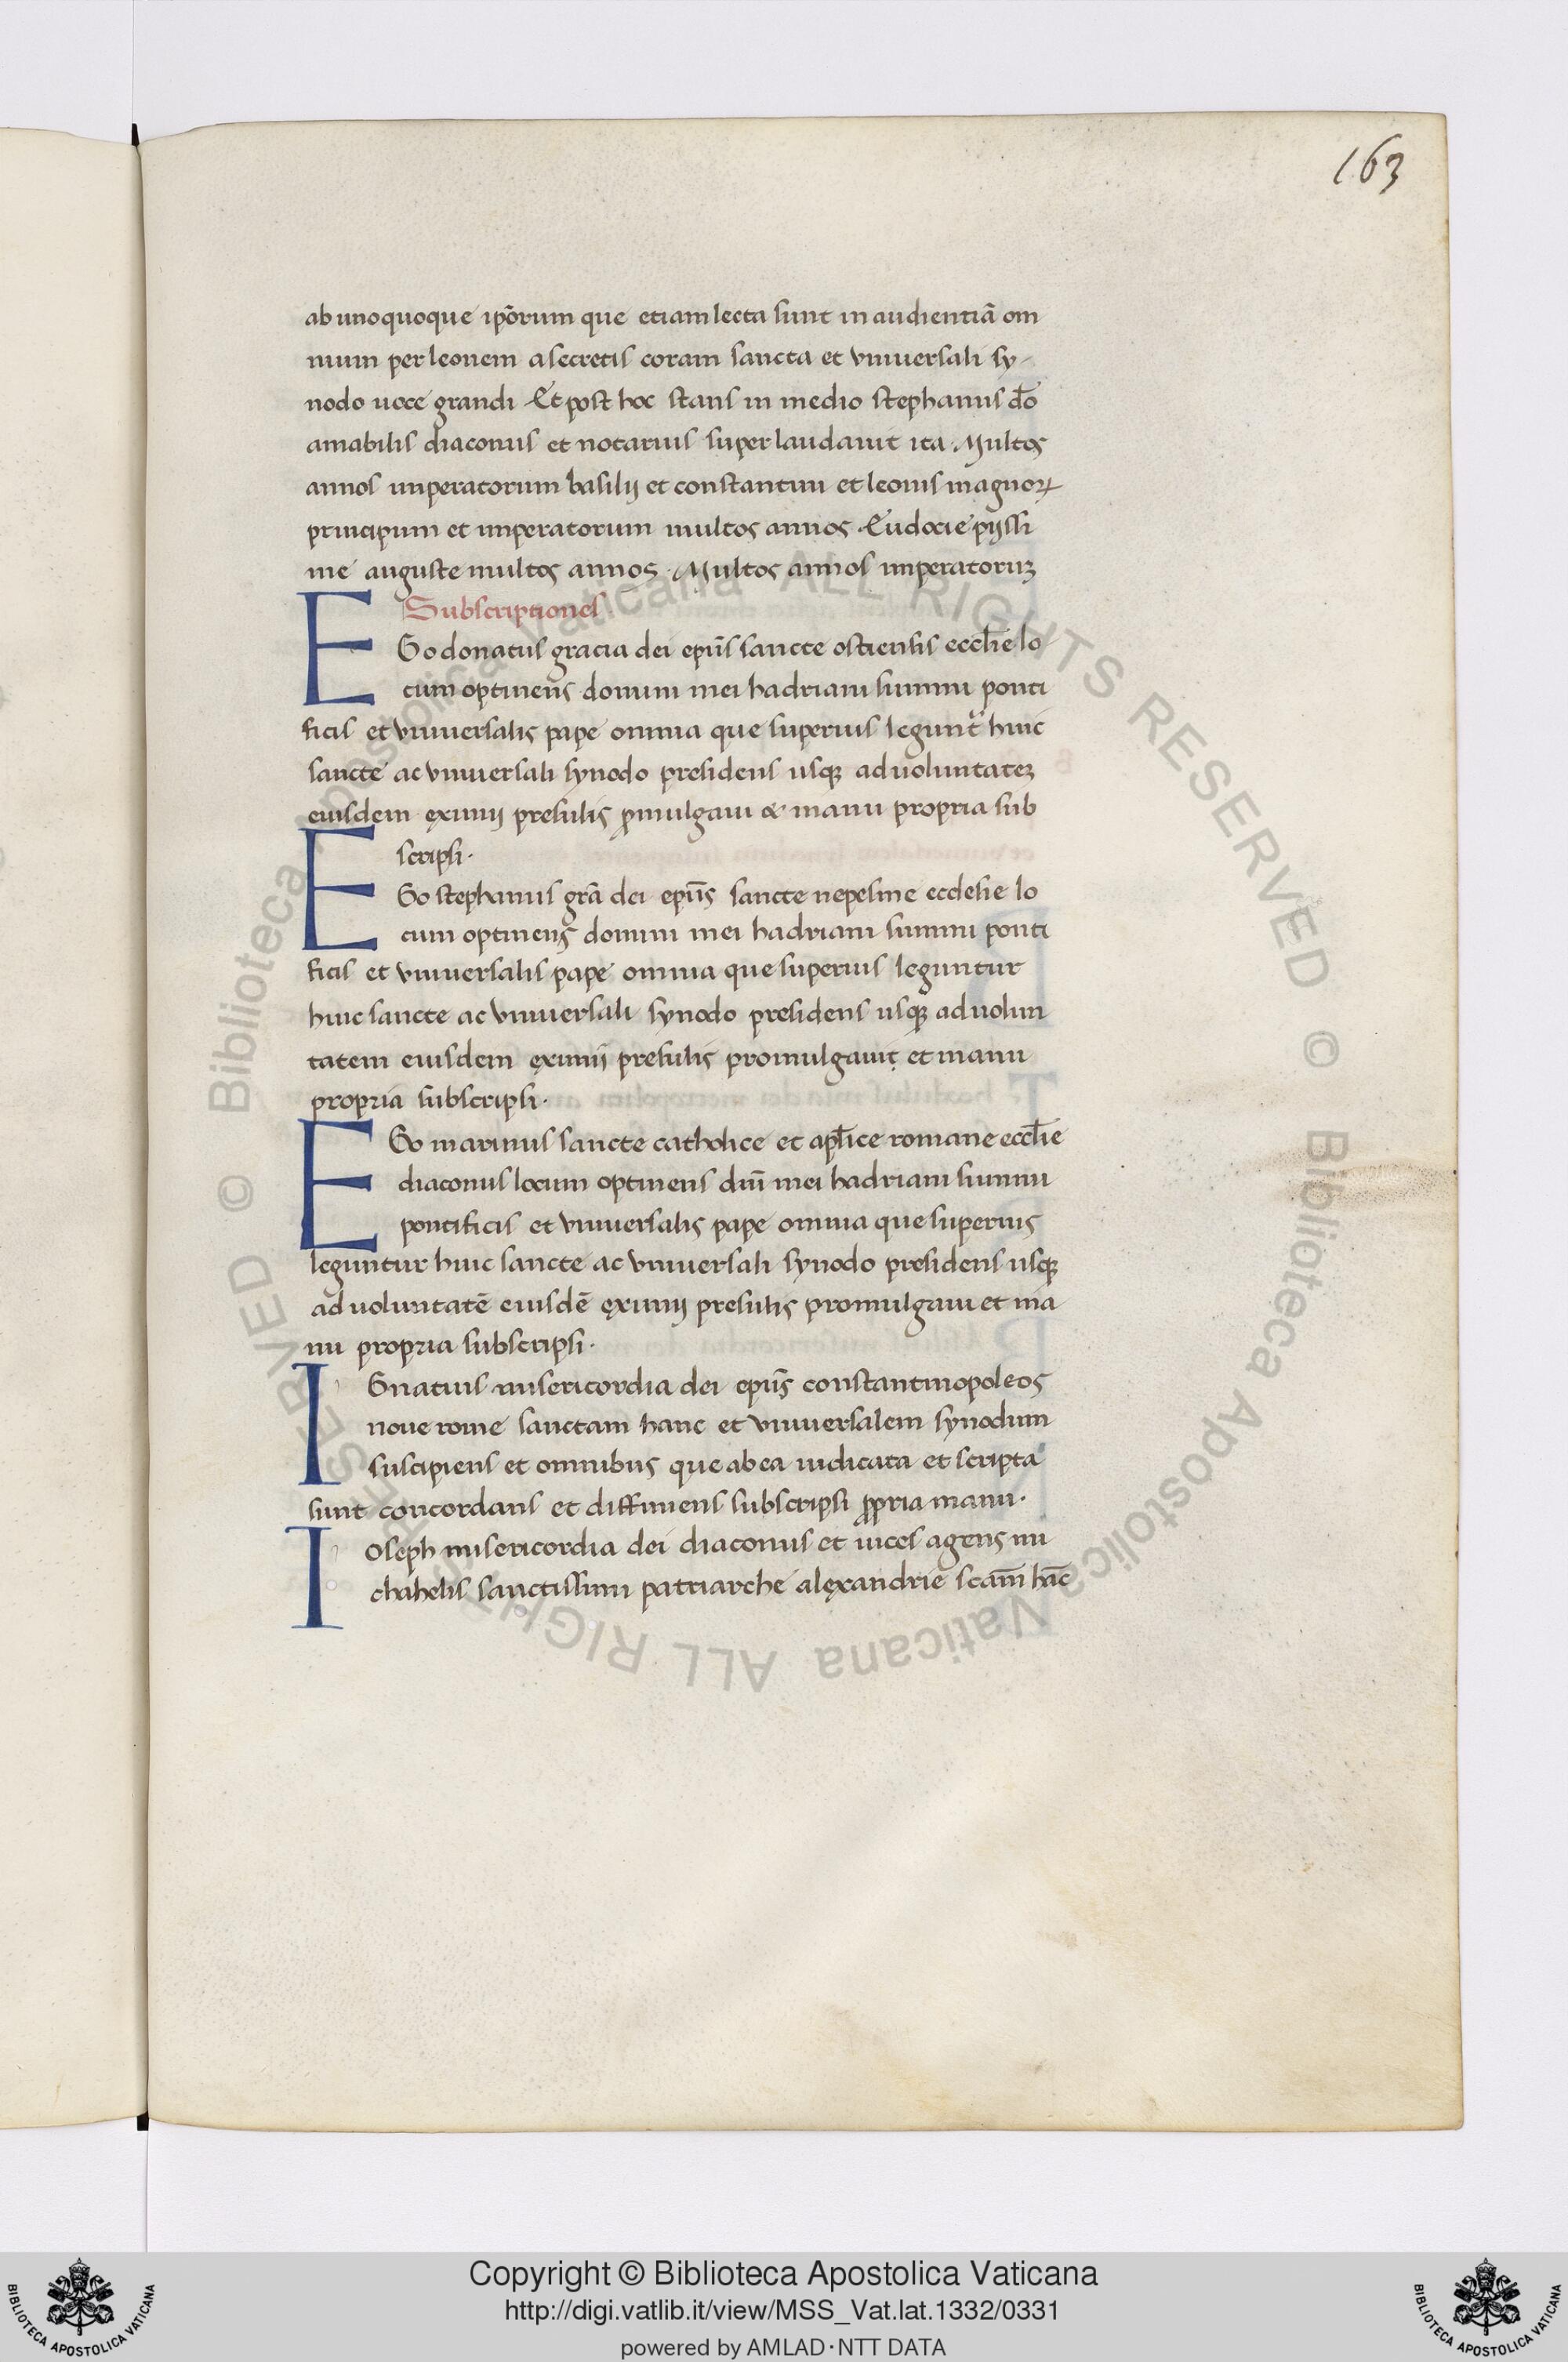 163
ab unoquoque ip̄orum que etiam lecta sunt in audientiā om
nium per leonem asecretis coram sancta et vniuersali sy-
nodo uoce grandi. Et post hoc stans in medio stephanus do̅
amabilis diaconus et notarius superlaudauit ita. Multos
annos imperatorum basilij et constantini et leonis magnoꝝ
principum et imperatorum multos annos. Eudocie pijssi
me auguste multos annos. Multos annos imperatoruꝫ
Subscriptiones
EGo donatus gracia dei ep̄us sancte ostiensis eccl̄ie lo
cum optinens domini mei hadriani summi ponti
ficis et vniuersalis pape omnia que superius legunt᷑ huic
sancte ac vniuersali synodo presidens usqꝫ ad uoluntateꝫ
eiusdem eximij presulis ꝓmulgaui & manu propria sub
scripsi.
EGo stephanus grā dei ep̄us sancte nepesine ecclesie lo
cum optinens domini mei hadriani summi ponti
ficis et vniuersalis pape omnia que superius leguntur
huic sancte ac vniuersali synodo presidens usqꝫ ad uolun
tatem eiusdem eximij presulis promulgauiṭ et manu
propria subscripsi.
EGo marinus sancte catholice et apl̄ice romane eccl̄ie
diaconus locum optinens dn̄i mei hadriani summi
pontificis et vniuersalis pape omnia que superius
leguntur huic sancte ac vniuersali synodo presidens usqꝫ
ad uoluntatē eiusdē eximij presulis promulgaui et ma
nu propria subscripsi.
IGnatius misericordia dei ep̄us constantinopoleos
noue rome sanctam hanc et vniuersalem synodum
suscipiens et omnibus que ab ea iudicata et scripta
sunt concordans et diffiniens subscripsi ꝓpria manu.
Ioseph misericordia dei diaconus et uices agens mi
chahelis sanctissimi patriarche alexandrie scam̄ hāc
© Biblioteca Apostolica Vaticana ALL RIGHTS RESERVED © Biblioteca Apostolica Vaticana ALL RIGHTS RESERVED
Copyright © Biblioteca Apostolica Vaticana
http://digi.vatlib.it/view/MSS_Vat.lat.1332/0331
powered by AMLAD·NTT DATA
BIBLIOTECA APOSTOLICA VATICANA
BIBLIOTECA APOSTOLICA VATICANA